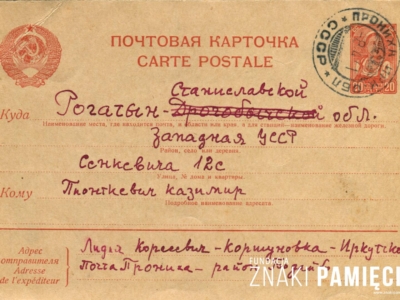 ПОЧТОВАЯ КАРТОЧКА
CARTE POSTALE
ПРОНИХА
СССР
Станиславской
Куда Рогатын - Дрогобычской обл.
Наименование места, где находится почта, и области или края, а для станций — наименование железной дороги.
Западная УССР
Район, село или деревня.
Сенкевича 12с
Улица, № дома и квартиры.
Кому Пионткевич казимир
Подробное наименование адресата.
Адрес отправителя
Adresse de l'expéditeur
Лидия - Коршуновка - Иркутск
Почта Прониха - район
FUNDACJA
ZNAKI PAMIĘCI